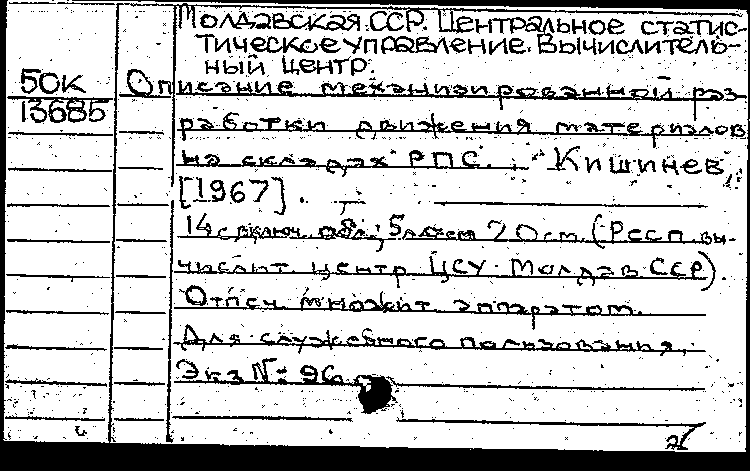 Молдавская ССР. Центральное статис-
тическое управление. Вычислитель-
ный центр.
50К Описание механизированной раз-
13685
работки движения материалов
на складах РПС. Кишинев,
[1967].
14 с включ. обл.; 5 л схем 20 см. (Респ. вы-
числит центр ЦСУ Молдав ССР).
Отпеч. множит. аппаратом.
Для служебного пользования.
Экз №: 96